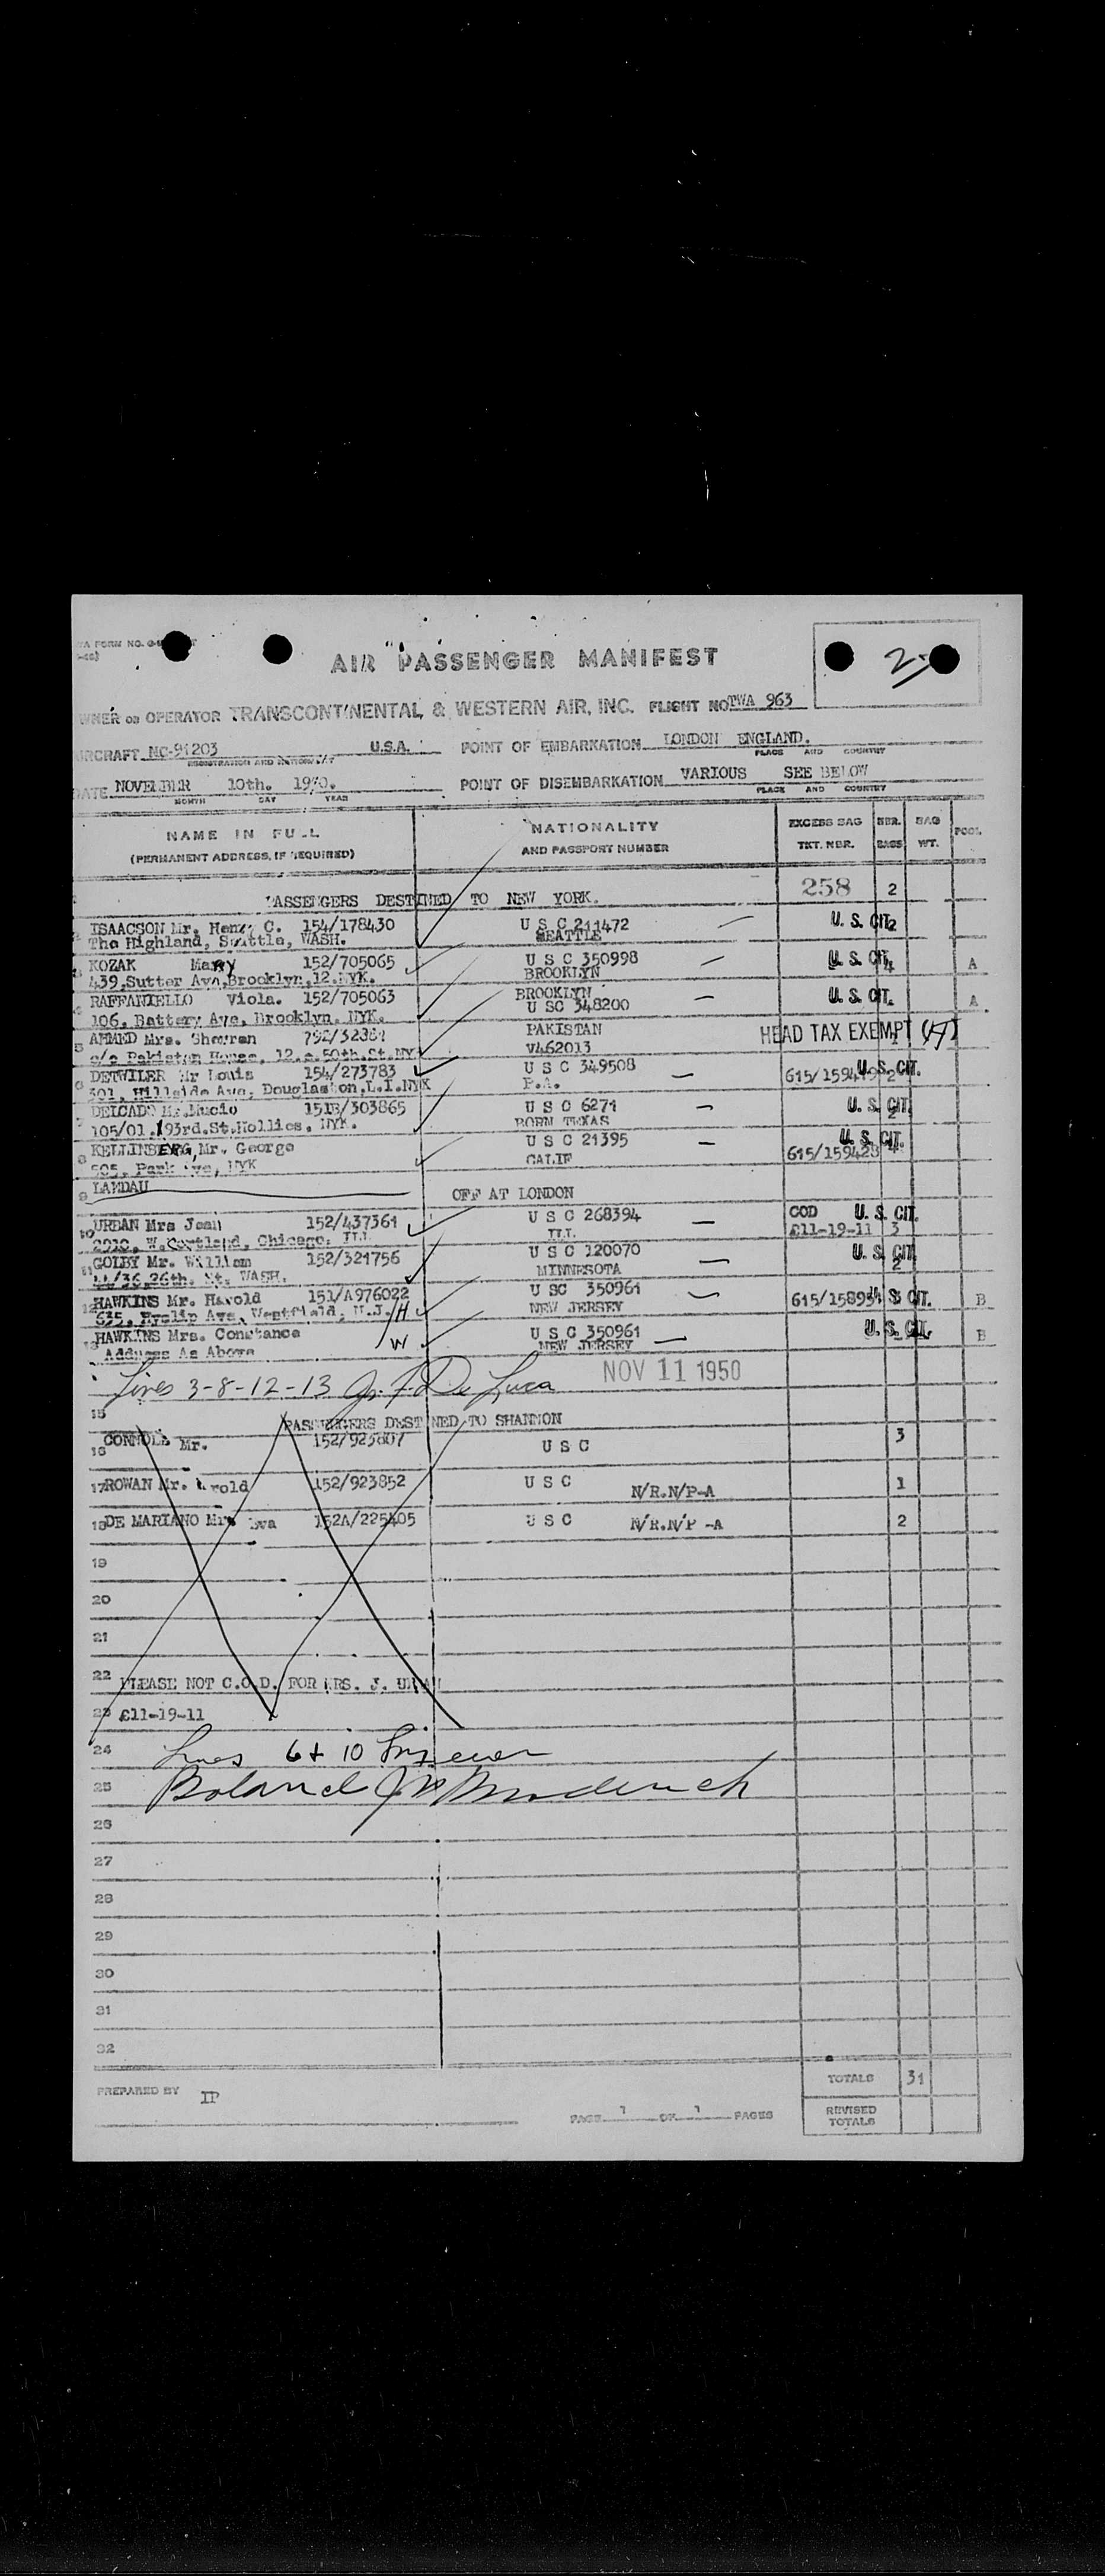 AIR PASSENGER MANIFEST
OWNER OR OPERATOR TRANSCONTINENTAL & WESTERN AIR, INC. FLIGHT NO TWA 963
AIRCRAFT NC-91203 U.S.A. POINT OF EMBARKATION LONDON ENGLAND.
REGISTRATION AND NATIONALITY PLACE AND COUNTRY
DATE NOVEMBER 10th. 1950. POINT OF DISEMBARKATION VARIOUS SEE BELOW
MONTH DAY YEAR PLACE AND COUNTRY
NAME IN FULL NATIONALITY EXCESS BAG NBR. BAG POOL
(PERMANENT ADDRESS, IF REQUIRED) AND PASSPORT NUMBER TKT. NBR. BAGS WT.
PASSENGERS DESTINED TO NEW YORK. 258 2
ISAACSON Mr. Henry C. 154/178430 U S C 211472 U. S. CIT. 2
The Highland, Seattle, WASH. SEATTLE
KOZAK Mary 152/705065 U S C 350998 U. S. CIT. 4 A
439,Sutter Ave,Brooklyn,12.NYK. BROOKLYN
RAFFANIELLO Viola. 152/705063 BROOKLYN U. S. CIT. A
106. Battery Ave, Brooklyn. NYK. U SC 348200
AHMED Mrs. PAKISTAN HEAD TAX EXEMPT
c/o Pakistan House, 12.e.50th.St.NY V462013
5
DETWILER Mr Louis 154/273783 U S C 349508 U. S. CIT.
501, Hillside Ave, Douglaston,L.I.NYK P.A.
DELCADO Mr.Mucio 151B/303865 U S C 6271 U. S. CIT. 2
105/01.193rd.St.Hollies. NYK. BORN TEXAS
KELLINSBERG,Mr. George U S C 21395 U. S. CIT.
905, Park Ave, NYK CALIF 615/159428
9 LANDAU OFF AT LONDON
URBAN Mrs Jean 152/437361 U S C 268394 COD U. S. CIT.
10 W.Cortland, Chicago. ILL ILL. £11-19-11 3
GOLBY Mr. William 152/321756 U S C 120070 U. S. CIT. 2
26th. St. WASH. MINNESOTA
HAWKINS Mr. Harold 151/A976022 U SC 350961 U. S. CIT. B
635, Hyslip Ave, Westfield, N.J. /H NEW JERSEY
HAWKINS Mrs. Constance W U S C 350961 U. S. CIT. B
Address As Above NEW JERSEY
NOV 11 1950
Lines 3-8-12-13 De Luca
15
PASSENGERS DESTINED TO SHANNON
16 Mr. 152/925807 U S C 3
17 ROWAN Mr. 152/923852 U S C N/R.N/P-A 1
18 DE MARIANO 152A/225405 U S C N/R.N/P -A 2
19
20
21
22 PLEASE NOT C.O.D. FOR MRS. J. URBAN
23 £11-19-11
24 Lines 6 + 10
25 Roland
26
27
28
29
30
31
32
TOTALS 31
PREPARED BY IP
PAGE 1 OF 1 PAGES
REVISED
TOTALS